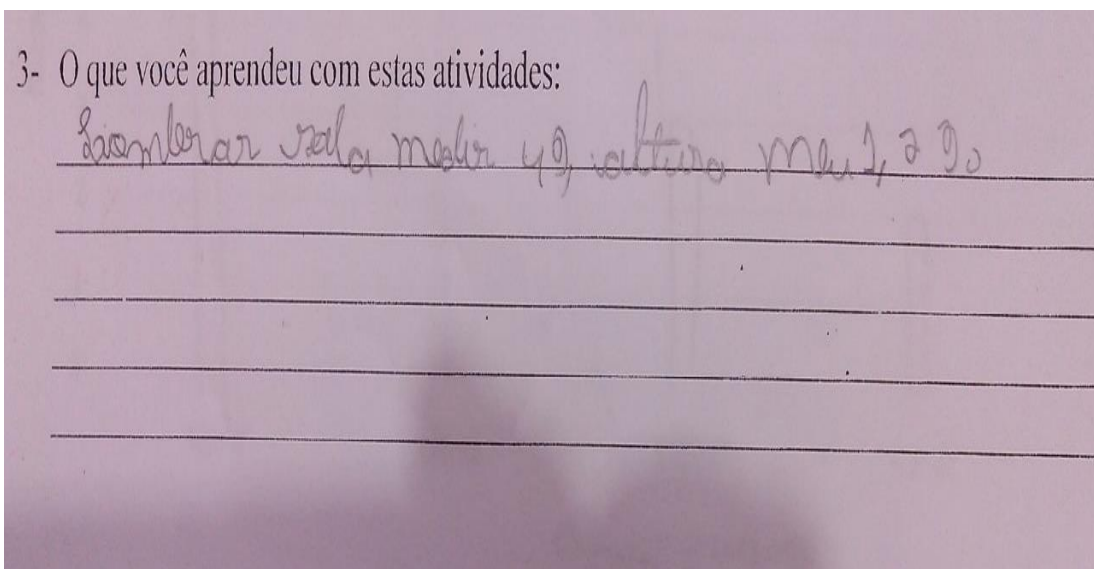 3- O que você aprendeu com estas atividades:
sala medir 49, altura meu